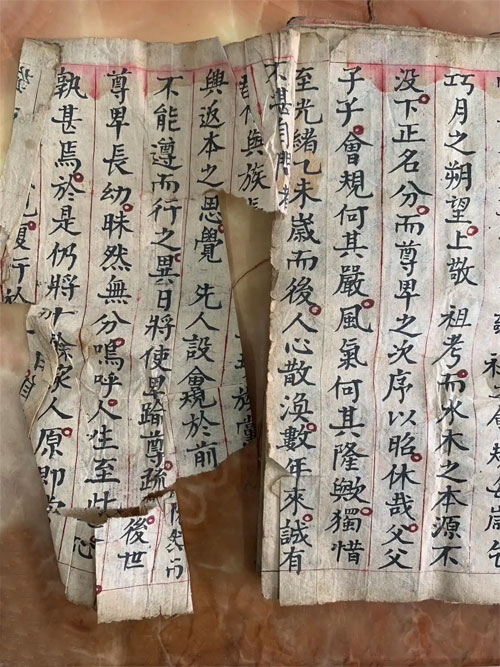 巧月之朔望上敬 祖考而水木之本源不
没下正名分而尊卑之次序以昭休哉父父
子子會規何其嚴風氣何其隆歟獨惜
至光緒乙未歲而後人心散渙數年來誠有
不甚
與族
五族黨
興返本之思覺 先人設會規於前
不能遵而行之異日將使卑踰尊疏
尊卑長幼昧然無分嗚呼人生至此
孰甚焉於是仍將 餘家人原即
復行
後世